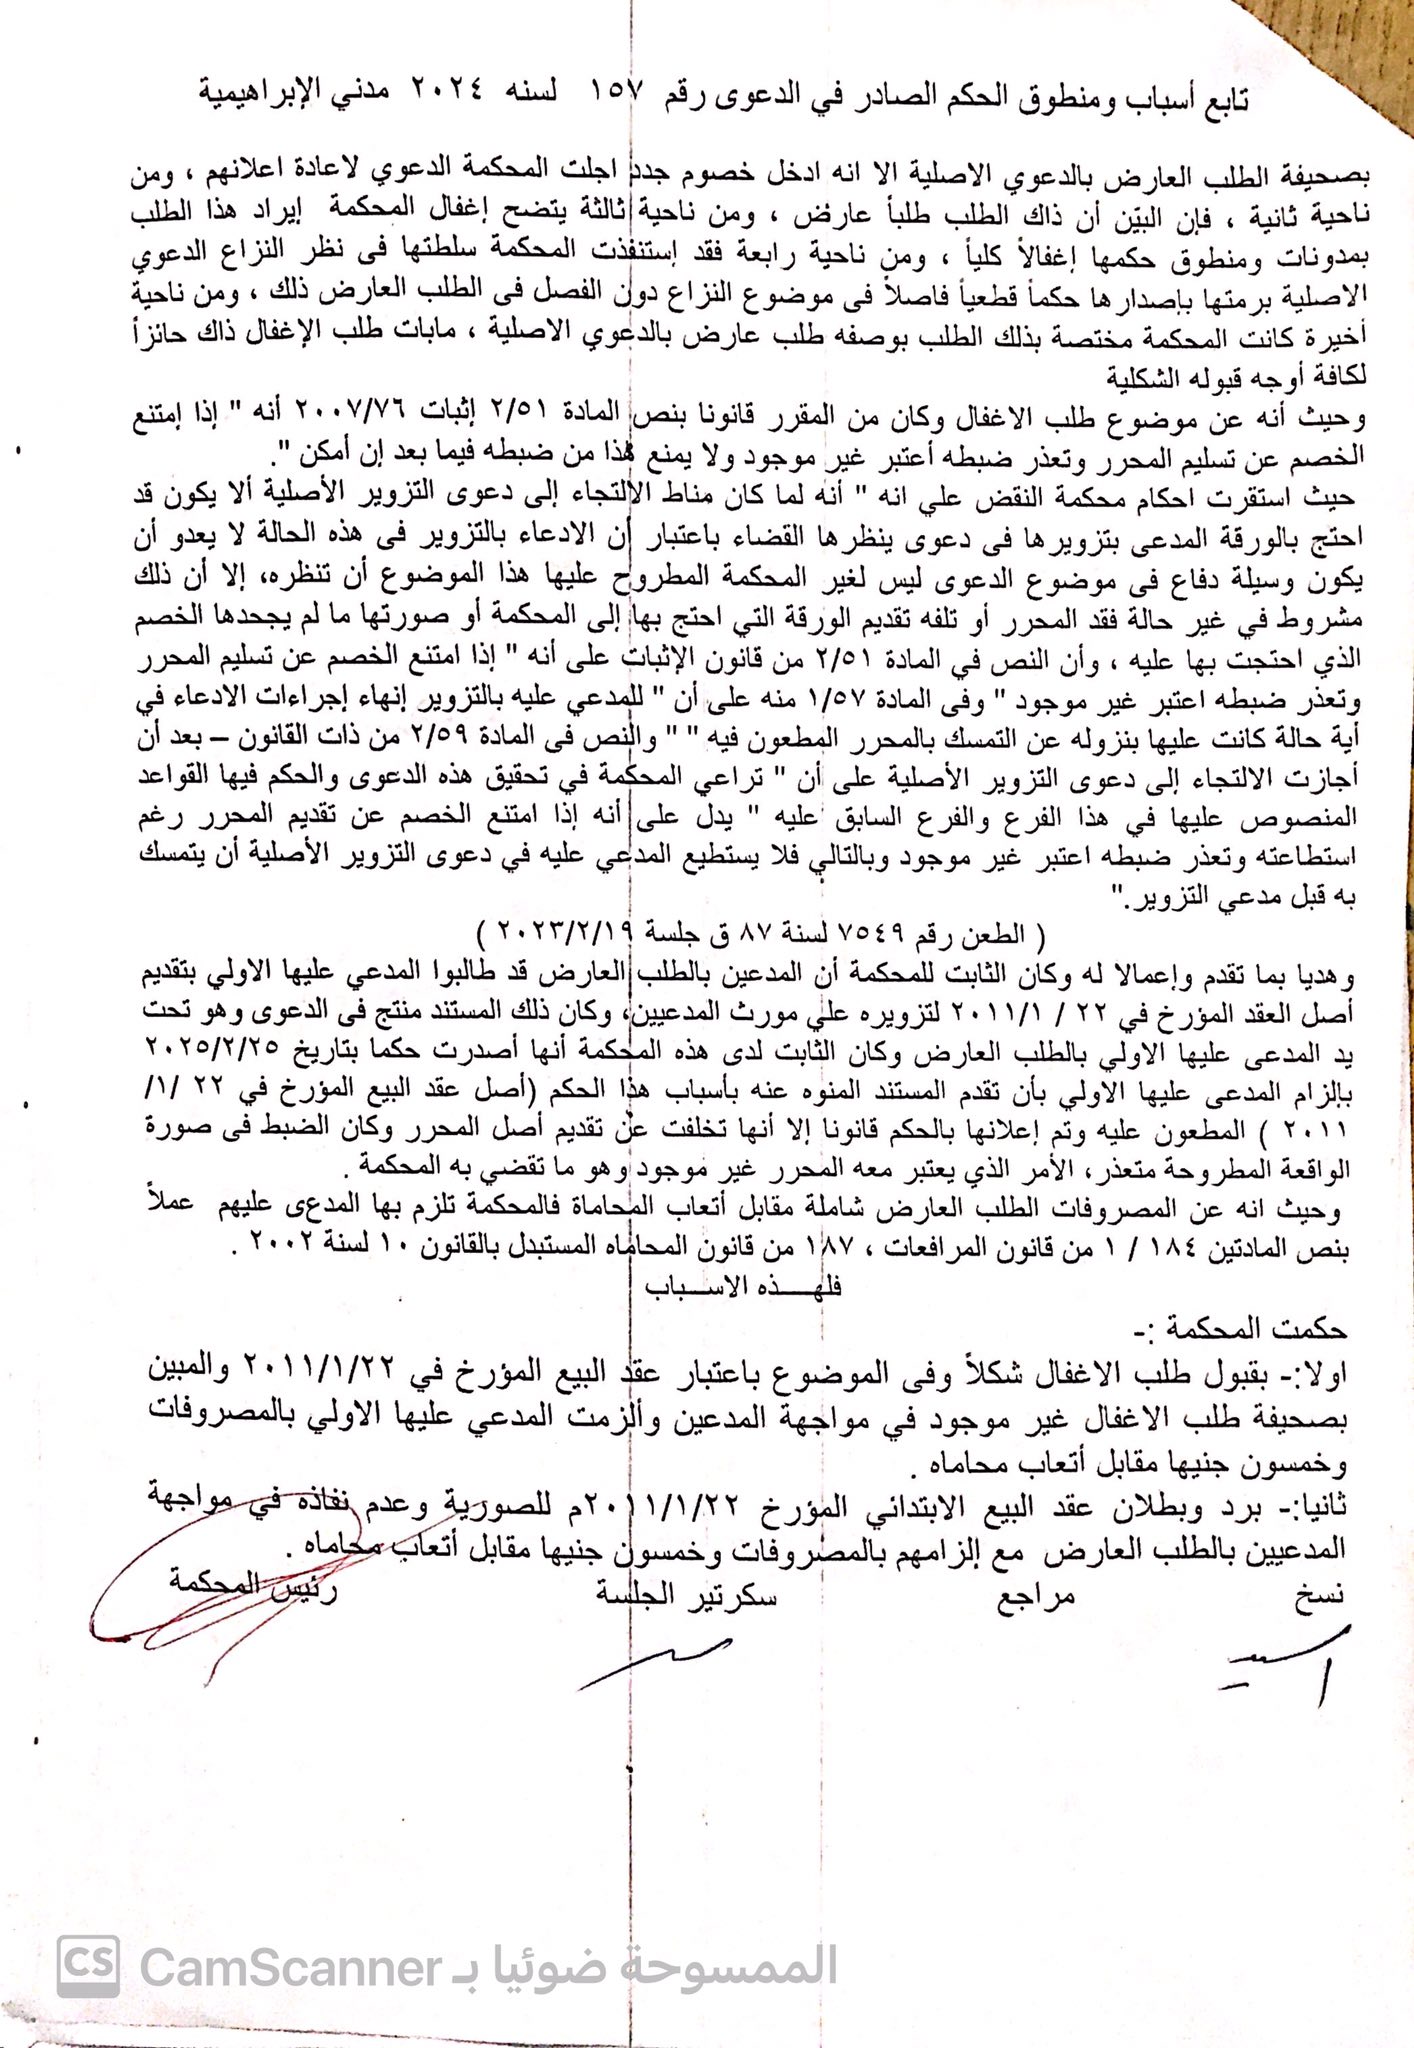 تابع أسباب ومنطوق الحكم الصادر في الدعوى رقم ١٥٧ لسنه ٢٠٢٤ مدني الإبراهيمية
بصحيفة الطلب العارض بالدعوي الاصلية الا انه ادخل خصوم جدد اجلت المحكمة الدعوي لاعادة اعلانهم ، ومن
ناحية ثانية ، فإن البيّن أن ذاك الطلب طلباً عارض ، ومن ناحية ثالثة يتضح إغفال المحكمة إيراد هذا الطلب
بمدونات ومنطوق حكمها إغفالاً كلياً ، ومن ناحية رابعة فقد إستنفذت المحكمة سلطتها فى نظر النزاع الدعوي
الاصلية برمتها بإصدارها حكماً قطعياً فاصلاً فى موضوع النزاع دون الفصل فى الطلب العارض ذلك ، ومن ناحية
أخيرة كانت المحكمة مختصة بذلك الطلب بوصفه طلب عارض بالدعوي الاصلية ، مابات طلب الإغفال ذاك حائزاً
لكافة أوجه قبوله الشكلية
وحيث أنه عن موضوع طلب الاغفال وكان من المقرر قانونا بنص المادة ٢/٥١ إثبات ٢٠٠٧/٧٦ أنه " إذا إمتنع
الخصم عن تسليم المحرر وتعذر ضبطه أعتبر غير موجود ولا يمنع هذا من ضبطه فيما بعد إن أمكن ".
حيث استقرت احكام محكمة النقض علي انه " أنه لما كان مناط الالتجاء إلى دعوى التزوير الأصلية ألا يكون قد
احتج بالورقة المدعى بتزويرها فى دعوى ينظرها القضاء باعتبار أن الادعاء بالتزوير فى هذه الحالة لا يعدو أن
يكون وسيلة دفاع فى موضوع الدعوى ليس لغير المحكمة المطروح عليها هذا الموضوع أن تنظره، إلا أن ذلك
مشروط في غير حالة فقد المحرر أو تلفه تقديم الورقة التي احتج بها إلى المحكمة أو صورتها ما لم يجحدها الخصم
الذي احتجت بها عليه ، وأن النص في المادة ٢/٥١ من قانون الإثبات على أنه " إذا امتنع الخصم عن تسليم المحرر
وتعذر ضبطه اعتبر غير موجود " وفى المادة ١/٥٧ منه على أن " للمدعي عليه بالتزوير إنهاء إجراءات الادعاء في
أية حالة كانت عليها بنزوله عن التمسك بالمحرر المطعون فيه " " والنص فى المادة ٢/٥٩ من ذات القانون – بعد أن
أجازت الالتجاء إلى دعوى التزوير الأصلية على أن " تراعي المحكمة في تحقيق هذه الدعوى والحكم فيها القواعد
المنصوص عليها في هذا الفرع والفرع السابق عليه " يدل على أنه إذا امتنع الخصم عن تقديم المحرر رغم
استطاعته وتعذر ضبطه اعتبر غير موجود وبالتالي فلا يستطيع المدعي عليه في دعوى التزوير الأصلية أن يتمسك
به قبل مدعي التزوير."
( الطعن رقم ٧٥٤٩ لسنة ٨٧ ق جلسة ٢٠٢٣/٢/١٩ )
وهديا بما تقدم وإعمالا له وكان الثابت للمحكمة أن المدعين بالطلب العارض قد طالبوا المدعي عليها الاولي بتقديم
أصل العقد المؤرخ في ٢٢ / ٢٠١١/١ لتزويره علي مورث المدعيين، وكان ذلك المستند منتج فى الدعوى وهو تحت
يد المدعى عليها الاولي بالطلب العارض وكان الثابت لدى هذه المحكمة أنها أصدرت حكما بتاريخ ٢٠٢٥/٢/٢٥
بإلزام المدعى عليها الاولي بأن تقدم المستند المنوه عنه بأسباب هذا الحكم (أصل عقد البيع المؤرخ في ٢٢ /١/
٢٠١١ ) المطعون عليه وتم إعلانها بالحكم قانونا إلا أنها تخلفت عن تقديم أصل المحرر وكان الضبط فى صورة
الواقعة المطروحة متعذر، الأمر الذي يعتبر معه المحرر غير موجود وهو ما تقضي به المحكمة .
وحيث انه عن المصروفات الطلب العارض شاملة مقابل أتعاب المحاماة فالمحكمة تلزم بها المدعى عليهم عملاً
بنص المادتين ١٨٤ / ١ من قانون المرافعات ، ١٨٧ من قانون المحاماه المستبدل بالقانون ١٠ لسنة ٢٠٠٢ .
فلهـــذه الاســباب
حكمت المحكمة :-
اولا:- بقبول طلب الاغفال شكلاً وفى الموضوع باعتبار عقد البيع المؤرخ في ٢٠١١/١/٢٢ والمبين
بصحيفة طلب الاغفال غير موجود في مواجهة المدعين وألزمت المدعي عليها الاولي بالمصروفات
وخمسون جنيها مقابل أتعاب محاماه .
ثانيا:- برد وبطلان عقد البيع الابتدائي المؤرخ ٢٠١١/١/٢٢م للصورية وعدم نفاذه في مواجهة
المدعيين بالطلب العارض مع إلزامهم بالمصروفات وخمسون جنيها مقابل أتعاب محاماه .
نسخ مراجع سكرتير الجلسة رئيس المحكمة
CS CamScanner الممسوحة ضوئيا بـ